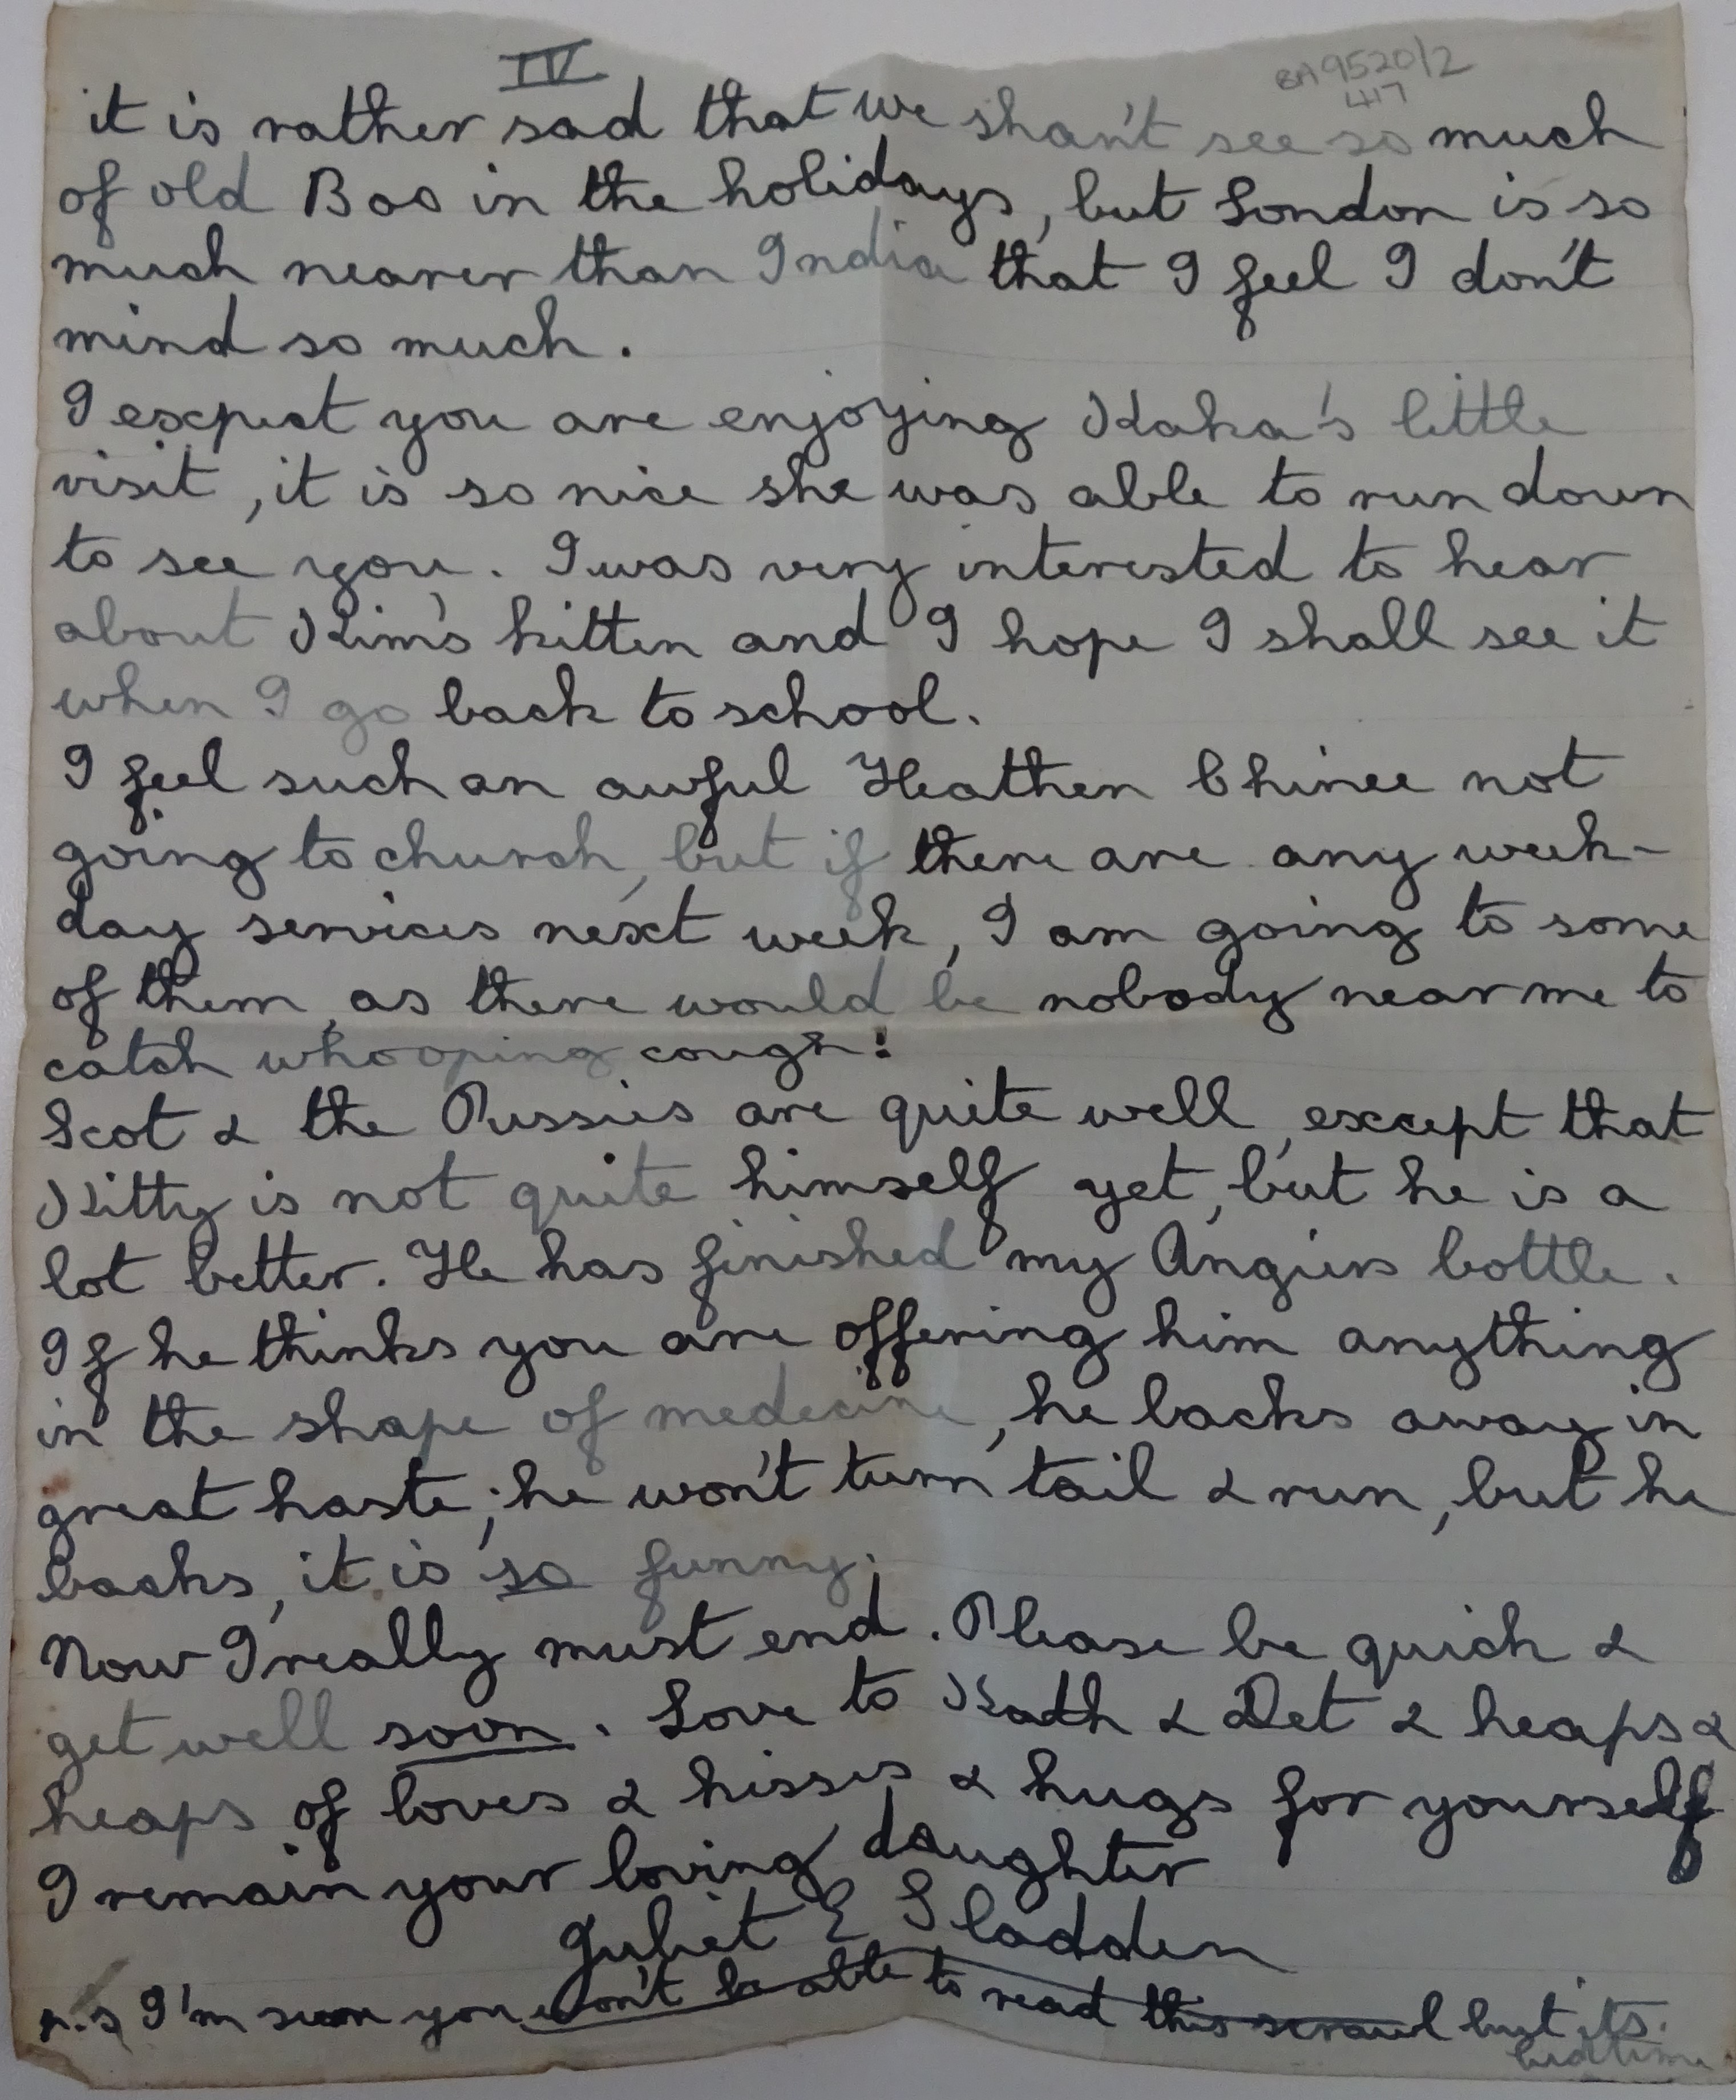 IV
BA9520/2
417
it is rather sad that we shan't see so much
of old Boo in the holidays, but London is so
much nearer than India that I feel I don't
mind so much.
I expect you are enjoying Kaka's little
visit, it is so nice she was able to run down
to see you. I was very interested to hear
about Kim's kitten and I hope I shall see it
when I go back to school.
I feel such an awful Heathen Chinee not
going to church, but if there are any week-
day services next week, I am going to some
of them, as there would be nobody near me to
catch whooping cough!
Scot & the Pussies are quite well, except that
Kitty is not quite himself yet, but he is a
lot better. He has finished my Angiers bottle.
If he thinks you are offering him anything
in the shape of medecine, he backs away in
great haste; he won't turn tail & run, but he
backs, it is so funny.
Now I really must end. Please be quick &
get well soon. Love to Kath & Det & heaps &
heaps of loves & kisses & hugs for yourself
I remain your loving daughter
Juliet E Sladden
P.S I'm sure you won't be able to read this scrawl but it's
bedtime